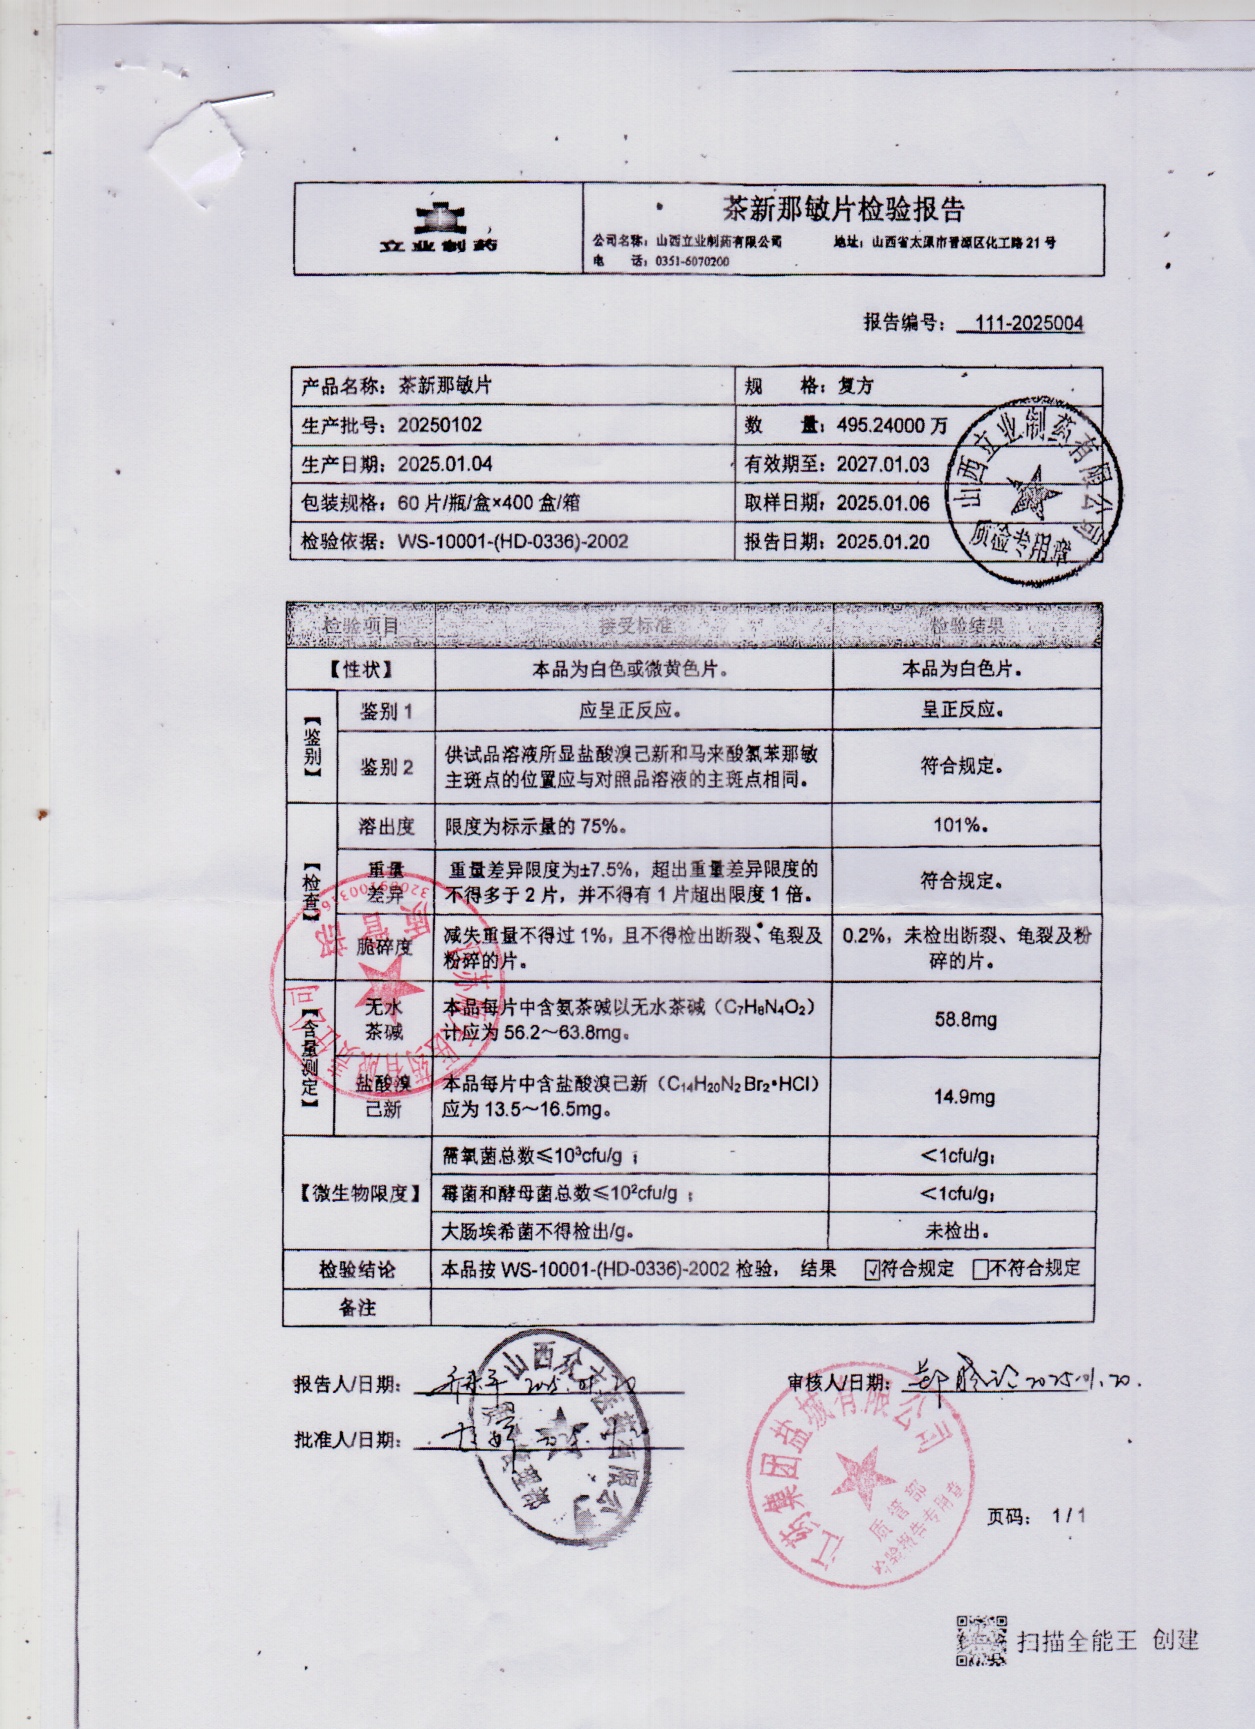 立业制药
茶新那敏片检验报告
公司名称：山西立业制药有限公司 地址：山西省太原市晋源区化工路21号
电 话：0351-6070200
报告编号： 111-2025004
产品名称：茶新那敏片 规 格：复方
生产批号：20250102 数 量：495.24000 万
生产日期：2025.01.04 有效期至：2027.01.03
包装规格：60 片/瓶/盒×400 盒/箱 取样日期：2025.01.06
检验依据：WS-10001-(HD-0336)-2002 报告日期：2025.01.20
山西立业制药有限公司
质检专用章
检验项目 接受标准 检验结果
【性状】 本品为白色或微黄色片。 本品为白色片。
【鉴别】
鉴别 1 应呈正反应。 呈正反应。
鉴别 2 供试品溶液所显盐酸溴己新和马来酸氯苯那敏
主斑点的位置应与对照品溶液的主斑点相同。 符合规定。
【检查】
溶出度 限度为标示量的 75%。 101%。
重量
差异 重量差异限度为±7.5%，超出重量差异限度的
不得多于 2 片，并不得有 1 片超出限度 1 倍。 符合规定。
脆碎度 减失重量不得过 1%，且不得检出断裂、龟裂及
粉碎的片。 0.2%，未检出断裂、龟裂及粉
碎的片。
【含量测定】
无水
茶碱 本品每片中含氨茶碱以无水茶碱（C₇H₈N₄O₂）
计应为 56.2～63.8mg。 58.8mg
盐酸溴
己新 本品每片中含盐酸溴己新（C₁₄H₂₀N₂Br₂•HCl）
应为 13.5～16.5mg。 14.9mg
【微生物限度】
需氧菌总数≤10³cfu/g ； ＜1cfu/g；
霉菌和酵母菌总数≤10²cfu/g ； ＜1cfu/g；
大肠埃希菌不得检出/g。 未检出。
检验结论 本品按 WS-10001-(HD-0336)-2002 检验， 结果 ☑符合规定 □不符合规定
备注
质管部
报告人/日期： 2025.01.20 审核人/日期： 2025.01.20.
批准人/日期：
江药集团盐城有限公司
质管部
检验报告专用章
页码： 1 / 1
扫描全能王 创建